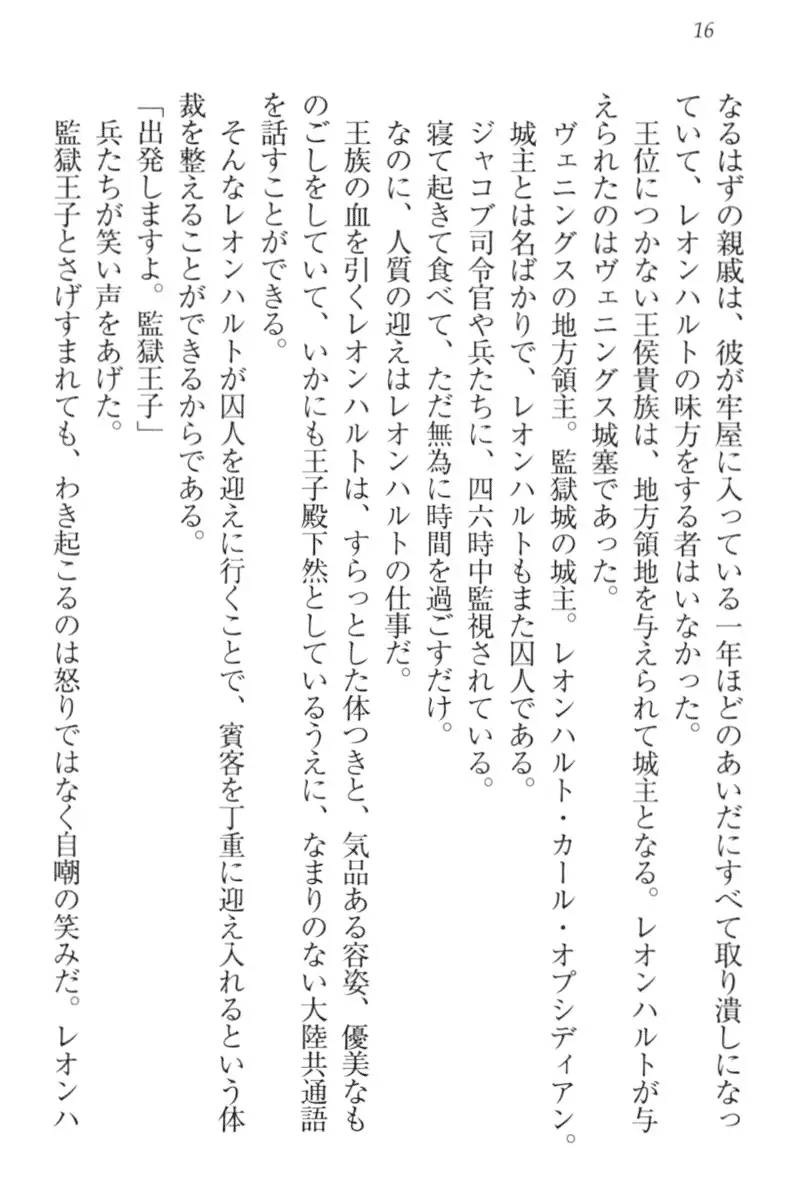 16
なるはずの親戚は、彼が牢屋に入っている一年ほどのあいだにすべて取り潰しになっ
ていて、レオンハルトの味方をする者はいなかった。
王位につかない王侯貴族は、地方領地を与えられて城主となる。レオンハルトが与
えられたのはヴェニングス城塞であった。
ヴェニングスの地方領主。監獄城の城主。レオンハルト・カール・オプシディアン。
城主とは名ばかりで、レオンハルトもまた囚人である。
ジャコブ司令官や兵たちに、四六時中監視されている。
寝て起きて食べて、ただ無為に時間を過ごすだけ。
なのに、人質の迎えはレオンハルトの仕事だ。
王族の血を引くレオンハルトは、すらっとした体つきと、気品ある容姿、優美なも
のごしをしていて、いかにも王子殿下然としているうえに、なまりのない大陸共通語
を話すことができる。
そんなレオンハルトが囚人を迎えに行くことで、賓客を丁重に迎え入れるという体
裁を整えることができるからである。
「出発しますよ。監獄王子」
兵たちが笑い声をあげた。
監獄王子とさげすまれても、わき起こるのは怒りではなく自嘲の笑みだ。レオンハ